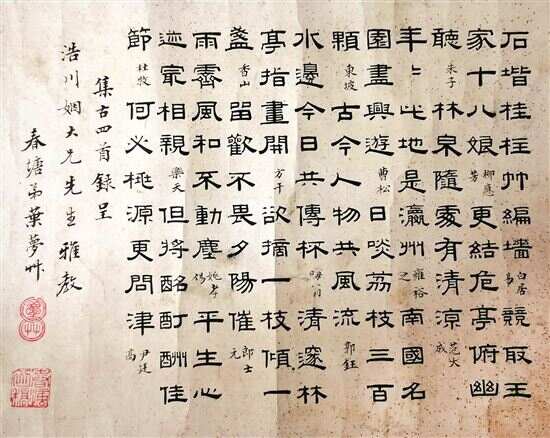 石堦桂柱竹編墻白居易競取王
家十八娘柳應芳更結危亭俯幽
聽朱子林泉隨處有清涼范大成
年〻此地是瀛州羅裕之南國名
園盡興遊曹松日啖荔枝三百
顆東坡古今人物共風流郭鈺
水邊今日共傳杯晦翁清邃林
亭指畫開方干欲摘一枝傾一
盞香山留歡不畏夕陽催郎士元
雨霽風和不動塵姚孝錫平生心
迹最相親樂天但將酩酊酬佳
節杜牧何必桃源更問津尹廷高
集古四首錄呈
浩川姻大兄先生雅教
春塘弟葉夢艸